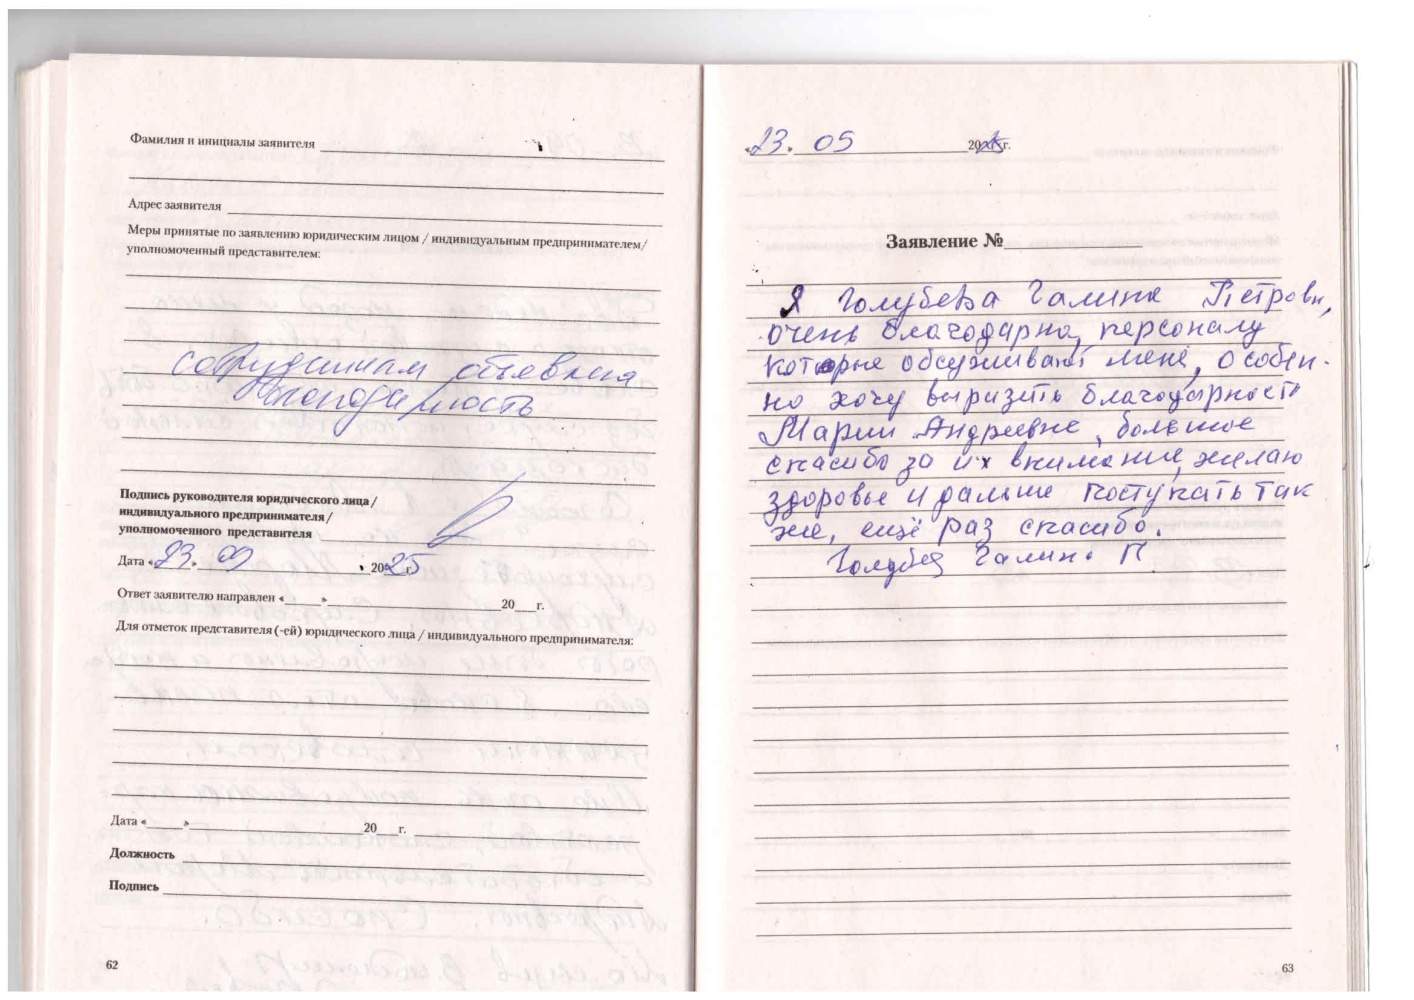 Фамилия и инициалы заявителя
Адрес заявителя
Меры принятые по заявлению юридическим лицом / индивидуальным предпринимателем/
уполномоченный представителем:
сотрудникам объявлена
благодарность
Подпись руководителя юридического лица /
индивидуального предпринимателя /
уполномоченного представителя
Дата «23» 09 2025 г.
Ответ заявителю направлен « » 20 г.
Для отметок представителя (-ей) юридического лица / индивидуального предпринимателя:
Дата « » 20 г.
Должность
Подпись
62
«23» 09 2025г.
Заявление №
Я Голубева Галина Петровн,
очень благодарна, персоналу
которые обслуживают меня, особен-
но хочу выразить благодарность
Марии Андреевне, большое
спасибо за их внимание, желаю
здоровье и дальше поступать так
же, ещё раз спасибо.
Голубева Галина П
63